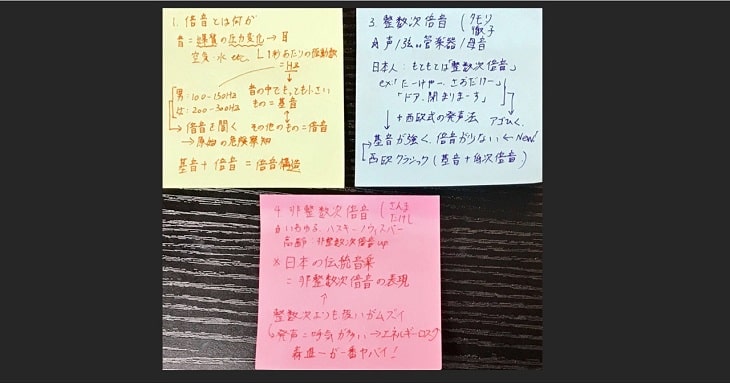 1. 倍音とは何か
音=媒質の圧力変化→耳
空気・水 etc. 1秒あたりの振動数
=Hz
男:100~150Hz
女:200~300Hz
音の中でも、とも小さい
もの=基音
→倍音を聞く その他のもの=倍音
→原始の危険察知
基音+倍音=倍音構造
3. 整数次倍音 (タモリ
徹子
声/弦・管楽器/母音
日本人:もともては「整数次倍音」
ex:「たーけやー、さおだけー」
「ドア、閉まりまーす」
↓+西欧式の発声法 アゴひく。
基音が強く、倍音がりない ←New!
西欧クラシック(基音+低次倍音)
4. 非整数次倍音 (さんま
たけし
いわゆる、ハスキー/ウィスパー
高齢:非整数次倍音up
※日本の伝統音楽
=非整数次倍音の表現
↑
整数次よりも扱いがムズイ
発声=呼気が多い→エネルギーロスク
森進一が一番ヤバイ!